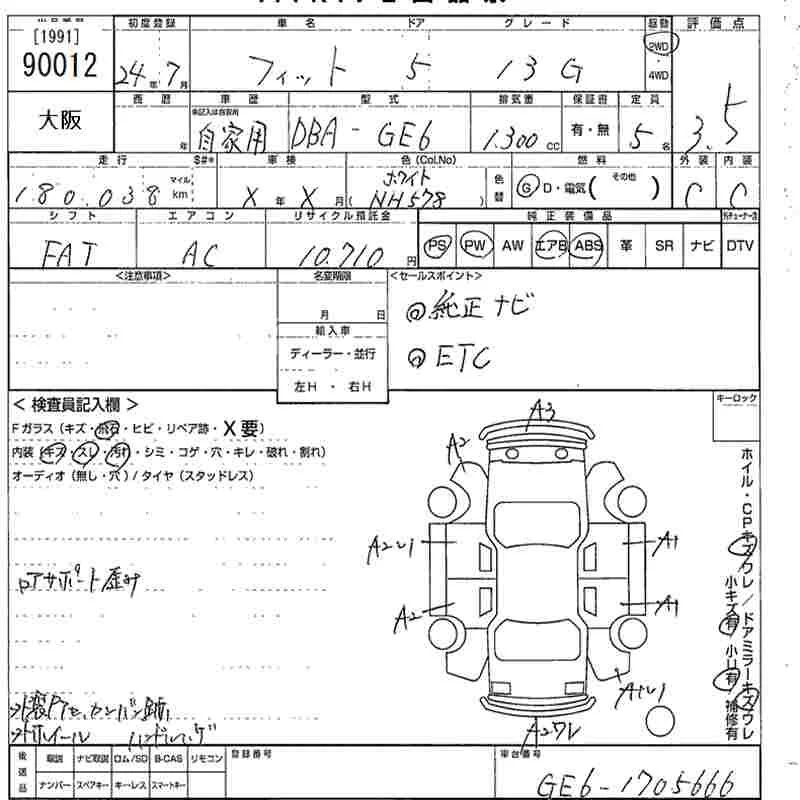 [1991]
90012
大阪
初度登録 車名 ドア グレード 駆動 評価点
24年7月 フィット 5 13G 2WD ・ 4WD 3.5
西暦 車歴 型式 排気量 保証書 定員
年 自家用 DBA-GE6 1300cc 有・無 5名
走行 車検 色(CoL.No) 燃料 外装 内装
180.038 マイル km X年X月 ホワイト (NH578) 色替 G D・電気( その他 ) C C
シフト エアコン リサイクル預託金 純正装備品
FAT AC 10.710円 PS PW AW エアB ABS 革 SR ナビ DTV
<注意事項> 名変期限 <セールスポイント>
月 日
輸入車
ディーラー・並行
左H ・ 右H
純正ナビ
ETC
< 検査員記入欄 >
Fガラス (キズ・飛石・ヒビ・リペア跡・X要)
内装 (キズ・スレ・汚れ・シミ・コゲ・穴・キレ・破れ・割れ)
オーディオ (無し・穴) / タイヤ (スタッドレス)
キーロック
A3
A2
A2U1 A1
A2 A1
A1U1
A2ワレ
ホイル・CPキズワレ/ドアミラーキズワレ
小キズ有 小U有 補修有
後送品 取説 ナビ取説 ロム/SD B-CAS リモコン
ナンバー スペアキー キーレス スマートキー
登録番号
車台番号
GE6-1705666